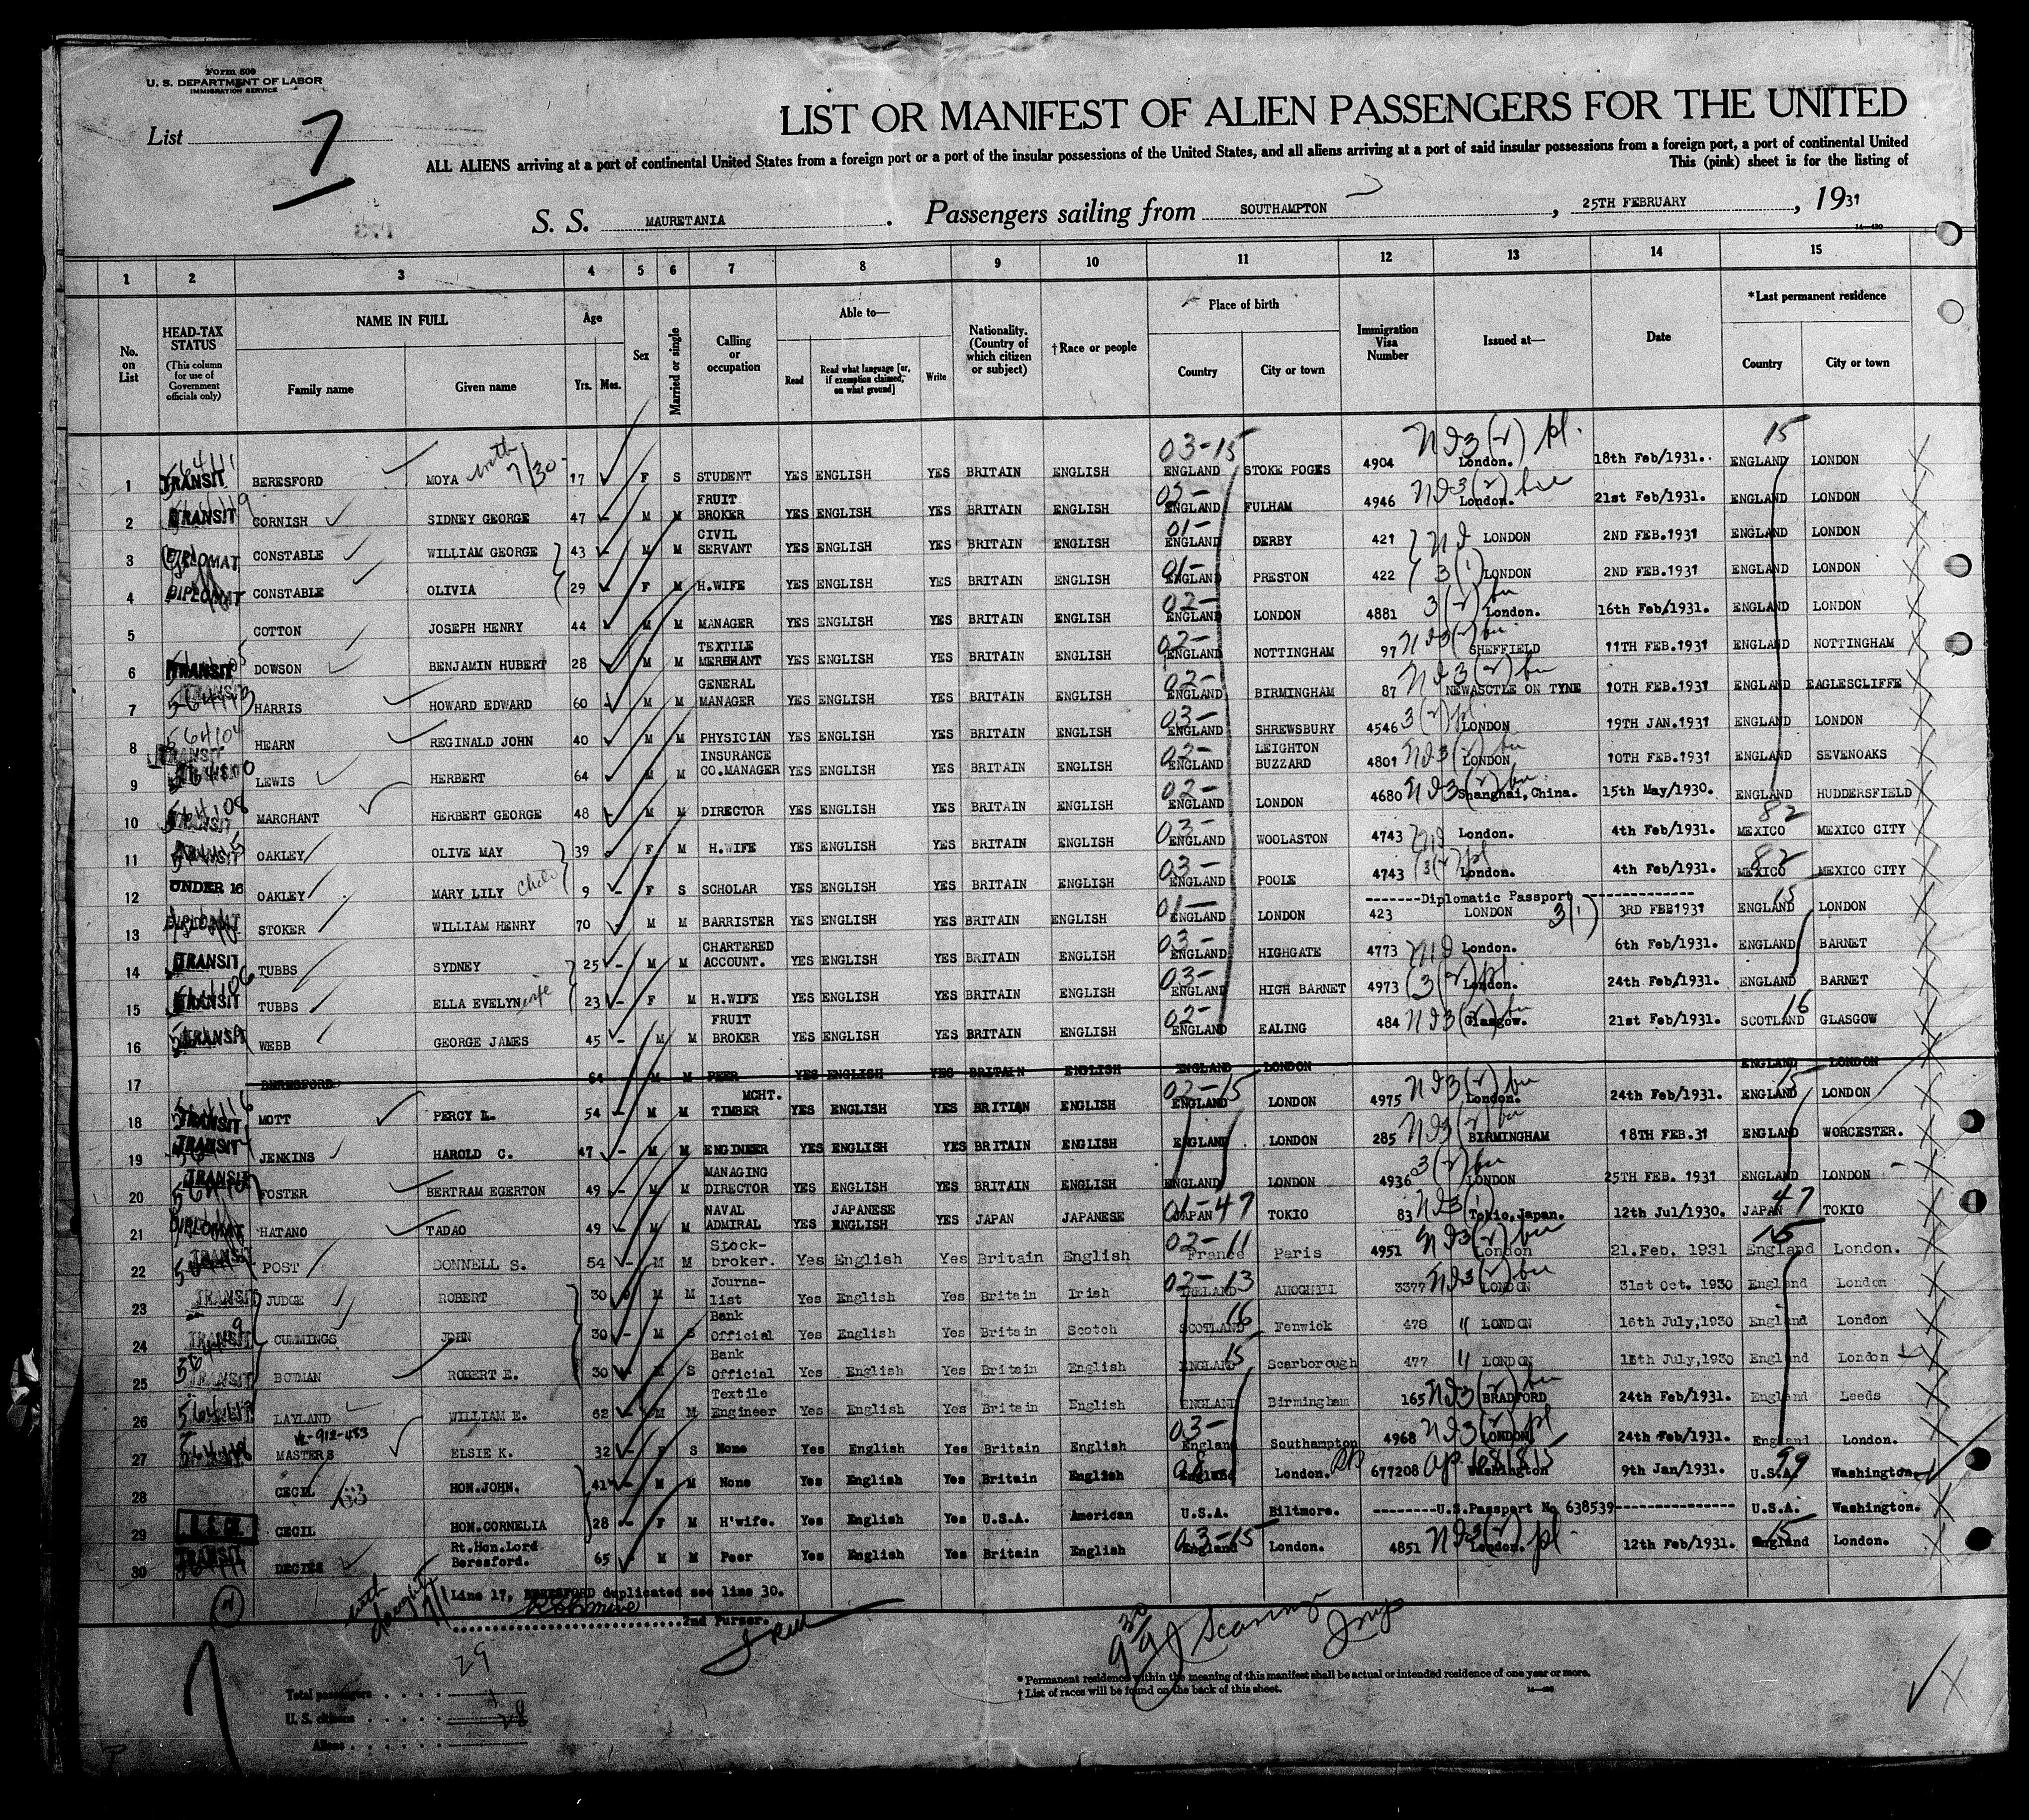 Form 500
U. S. DEPARTMENT OF LABOR
IMMIGRATION SERVICE
List 7
LIST OR MANIFEST OF ALIEN PASSENGERS FOR THE UNITED
ALL ALIENS arriving at a port of continental United States from a foreign port or a port of the insular possessions of the United States, and all aliens arriving at a port of said insular possessions from a foreign port, a port of continental United
This (pink) sheet is for the listing of
S. S. MAURETANIA. Passengers sailing from SOUTHAMPTON, 25TH FEBRUARY, 1931
14—430
1 2 3 4 5 6 7 8 9 10 11 12 13 14 15
No. on List
HEAD-TAX STATUS (This column for use of Government officials only)
NAME IN FULL
Family name Given name
Age Yrs. Mos.
Sex
Married or single
Calling or occupation
Able to— Read Read what language [or, if exemption claimed, on what ground] Write
Nationality. (Country of which citizen or subject)
†Race or people
Place of birth Country City or town
Immigration Visa Number
Issued at—
Date
*Last permanent residence Country City or town
1 TRANSIT BERESFORD MOYA with 7/30 17 F S STUDENT YES ENGLISH YES BRITAIN ENGLISH 03-15 ENGLAND STOKE POGES 4904 London. 18th Feb/1931. 15 ENGLAND LONDON
2 TRANSIT CORNISH SIDNEY GEORGE 47 M M FRUIT BROKER YES ENGLISH YES BRITAIN ENGLISH ENGLAND FULHAM 4946 London. 21st Feb/1931. ENGLAND LONDON
3 DIPLOMAT CONSTABLE WILLIAM GEORGE 43 M M CIVIL SERVANT YES ENGLISH YES BRITAIN ENGLISH 01- ENGLAND DERBY 421 LONDON 2ND FEB.1931 ENGLAND LONDON
4 DIPLOMAT CONSTABLE OLIVIA 29 F M H.WIFE YES ENGLISH YES BRITAIN ENGLISH 01- ENGLAND PRESTON 422 LONDON 2ND FEB.1931 ENGLAND LONDON
5 COTTON JOSEPH HENRY 44 M M MANAGER YES ENGLISH YES BRITAIN ENGLISH 02- ENGLAND LONDON 4881 London. 16th Feb/1931. ENGLAND LONDON
6 TRANSIT DOWSON BENJAMIN HUBERT 28 M M TEXTILE MERCHANT YES ENGLISH YES BRITAIN ENGLISH 02- ENGLAND NOTTINGHAM 97 SHEFFIELD 11TH FEB.1931 ENGLAND NOTTINGHAM
7 TRANSIT HARRIS HOWARD EDWARD 60 M M GENERAL MANAGER YES ENGLISH YES BRITAIN ENGLISH 02- ENGLAND BIRMINGHAM 87 NEWASCTLE ON TYNE 10TH FEB.1931 ENGLAND EAGLESCLIFFE
8 564104 HEARN REGINALD JOHN 40 M M PHYSICIAN YES ENGLISH YES BRITAIN ENGLISH 03- ENGLAND SHREWSBURY 4546 LONDON 19TH JAN.1931 ENGLAND LONDON
9 TRANSIT LEWIS HERBERT 64 M M INSURANCE CO.MANAGER YES ENGLISH YES BRITAIN ENGLISH 02- ENGLAND LEIGHTON BUZZARD 4801 LONDON 10TH FEB.1931 ENGLAND SEVENOAKS
10 564108 TRANSIT MARCHANT HERBERT GEORGE 48 M M DIRECTOR YES ENGLISH YES BRITAIN ENGLISH 02- ENGLAND LONDON 4680 Shanghai, China. 15th May/1930. ENGLAND HUDDERSFIELD
11 TRANSIT OAKLEY OLIVE MAY 39 F M H.WIFE YES ENGLISH YES BRITAIN ENGLISH 03- ENGLAND WOOLASTON 4743 London. 4th Feb/1931. 82 MEXICO MEXICO CITY
12 UNDER 16 OAKLEY MARY LILY child 9 F S SCHOLAR YES ENGLISH YES BRITAIN ENGLISH 03- ENGLAND POOLE 4743 London. 4th Feb/1931. 82 MEXICO MEXICO CITY
-------Diplomatic Passport--------------
13 DIPLOMAT STOKER WILLIAM HENRY 70 M M BARRISTER YES ENGLISH YES BRITAIN ENGLISH 01- ENGLAND LONDON 423 LONDON 3(1) 3RD FEB1931 15 ENGLAND LONDON
14 TRANSIT TUBBS SYDNEY 25 M M CHARTERED ACCOUNT. YES ENGLISH YES BRITAIN ENGLISH 03- ENGLAND HIGHGATE 4773 London. 6th Feb/1931. ENGLAND BARNET
15 TRANSIT TUBBS ELLA EVELYN wife 23 F M H.WIFE YES ENGLISH YES BRITAIN ENGLISH 03- ENGLAND HIGH BARNET 4973 London. 24th Feb/1931. ENGLAND BARNET
16 TRANSIT WEBB GEORGE JAMES 45 M M FRUIT BROKER YES ENGLISH YES BRITAIN ENGLISH 02- ENGLAND EALING 484 Glasgow. 21st Feb/1931. 16 SCOTLAND GLASGOW
17 BERESFORD 64 M M PEER YES ENGLISH YES BRITAIN ENGLISH ENGLAND LONDON ENGLAND LONDON
18 TRANSIT MOTT PERCY L. 54 M M MCHT. TIMBER YES ENGLISH YES BRITIAN ENGLISH 02-15 ENGLAND LONDON 4975 London. 24th Feb/1931. 15 ENGLAND LONDON
19 TRANSIT JENKINS HAROLD C. 47 M M ENGINEER YES ENGLISH YES BRITAIN ENGLISH ENGLAND LONDON 285 BIRMINGHAM 18TH FEB.31 ENGLAND WORCESTER.
20 TRANSIT FOSTER BERTRAM EGERTON 49 M M MANAGING DIRECTOR YES ENGLISH YES BRITAIN ENGLISH ENGLAND LONDON 4936 LONDON 25TH FEB. 1931 ENGLAND LONDON
21 DIPLOMAT HATANO TADAO 49 M M NAVAL ADMIRAL YES JAPANESE ENGLISH YES JAPAN JAPANESE 01-47 JAPAN TOKIO 83 Tokio, Japan. 12th Jul/1930. 47 JAPAN TOKIO
22 TRANSIT POST DONNELL S. 54 M M Stock-broker. Yes English Yes Britain English 02-11 France Paris 4951 London 21.Feb. 1931 15 England London.
23 TRANSIT JUDGE ROBERT 30 M M Journa-list Yes English Yes Britain Irish 02-13 IRELAND AHOGHILL 3377 LONDON 31st Oct. 1930 England London
24 TRANSIT CUMMINGS JOHN 30 M S Bank Official Yes English Yes Britain Scotch 16 SCOTLAND Fenwick 478 " LONDON 16th July,1930 England London
25 TRANSIT BOTMAN ROBERT E. 30 M S Bank Official Yes English Yes Britain English 15 ENGLAND Scarborough 477 " LONDON July,1930 England London
26 LAYLAND WILLIAM E. 62 M M Textile Engineer Yes English Yes Britain English ENGLAND Birmingham 165 BRADFORD 24th Feb/1931. England Leeds
27 MASTERS ELSIE K. 32 F S None Yes English Yes Britain English 03- England Southampton 4968 LONDON 24th Feb/1931. England London.
28 CECIL HON.JOHN. 41 M M None Yes English Yes Britain English England London. 677208 Washington 9th Jan/1931. 99 U.S.A. Washington.
29 CECIL HON.CORNELIA 28 F M H'wife. Yes English Yes U.S.A. American U.S.A. Biltmore. --------U.S.Passport No 638539---------------- U.S.A. Washington.
30 TRANSIT DECIES Rt.Hon.Lord Beresford. 65 M M Peer Yes English Yes Britain English 03-15 England London. 4851 London. 12th Feb/1931. 15 England London.
with daughter 7/1
Line 17, BERESFORD duplicated see line 30.
2nd Purser.
Total passengers 29
U. S. citizens 1
Aliens 28
* Permanent residence within the meaning of this manifest shall be actual or intended residence of one year or more.
† List of races will be found on the back of this sheet.